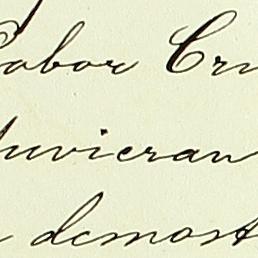 Cabor Cru
tuvieran
demost